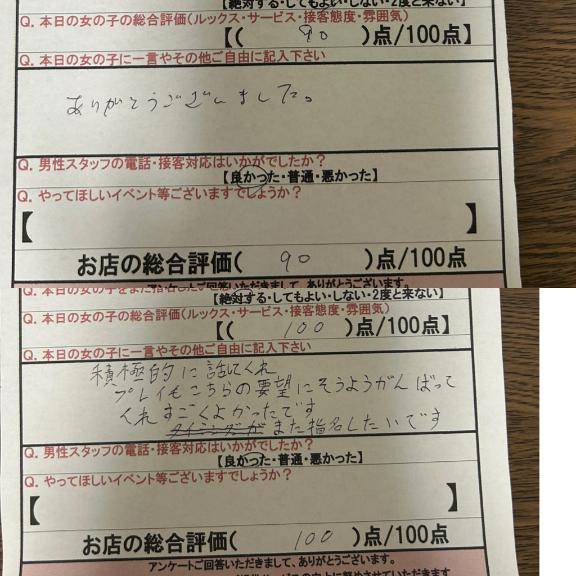 【絶対する・してもよい・しない・2度と来ない】
Q. 本日の女の子の総合評価(ルックス・サービス・接客態度・雰囲気)
【( 90 )点/100点】
Q. 本日の女の子に一言やその他ご自由に記入下さい
ありがとうございました。
Q. 男性スタッフの電話・接客対応はいかがでしたか?
【良かった・普通・悪かった】
Q. やってほしいイベント等ございますでしょうか?
【 】
お店の総合評価( 90 )点/100点
アンケートご回答いただきまして、ありがとうございます。
Q. 本日の女の子をまた指名した
【絶対する・してもよい・しない・2度と来ない】
Q. 本日の女の子の総合評価(ルックス・サービス・接客態度・雰囲気)
【( 100 )点/100点】
Q. 本日の女の子に一言やその他ご自由に記入下さい
積極的に話してくれ
プレイもこちらの要望にそうようがんばって
くれすごくよかったです
タイミングが また指名したいです
Q. 男性スタッフの電話・接客対応はいかがでしたか?
【良かった・普通・悪かった】
Q. やってほしいイベント等ございますでしょうか?
【 】
お店の総合評価( 100 )点/100点
アンケートご回答いただきまして、ありがとうございます。